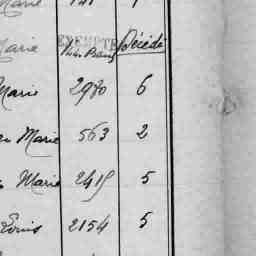 Marie 141 1
Marie EXEMPTÉ Décédé
Marie 2980 6
Marie 563 2
Marie 2415 5
Louis 2154 5